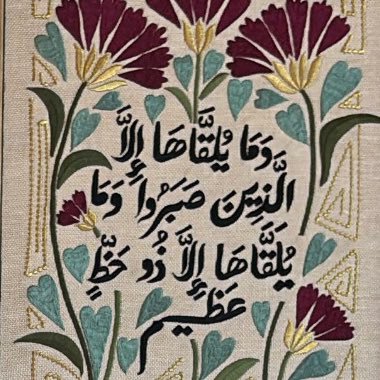 وَمَا يُلقَّاهَا إِلَّا
الَّذِينَ صَبَرُوا وَمَا
يُلقَّاهَا إِلَّا ذُو حَظٍّ
عَظِيم